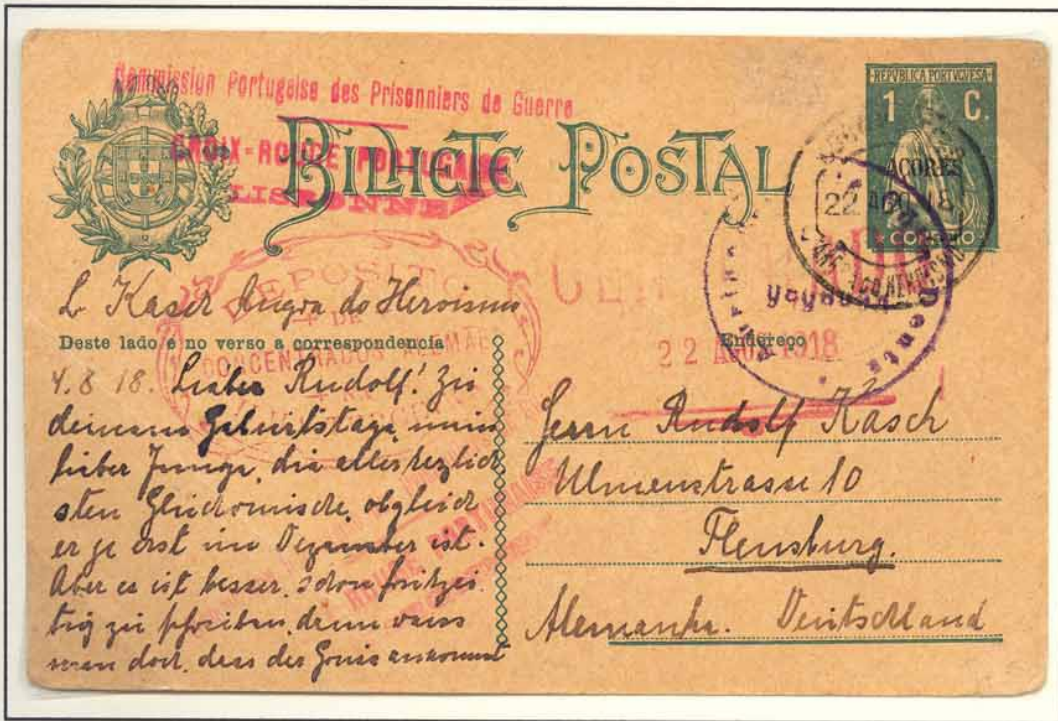 Commission Portugaise des Prisonniers de Guerre
CROIX-ROUGE PORTUGAISE
LISBONNE
BILHETE POSTAL
REPVBLICA PORTVGVESA
1 C.
AÇORES
CORREIO
22 AGO 18
DEPOSITO
DE
CONCENTRADOS ALEMÃES
L Kaser Angra do Heroismo
Deste lado e no verso a correspondencia
Endereço
22 AGO. 1918
4.8 18. Lieber Rudolf! Zu
deinem Geburtstage, mein
lieber Junge, die allerherzlich
sten Glückwünsche, obgleich
er ja erst im Dezember ist.
Aber es ist besser, schon frühzei
tig zu schreiben, denn weiss
man doch, dass der Gruss ankommt
Herrn Rudolf Käsch
Ulmenstrasse 10
Flensburg.
Alemanha. Deutschland